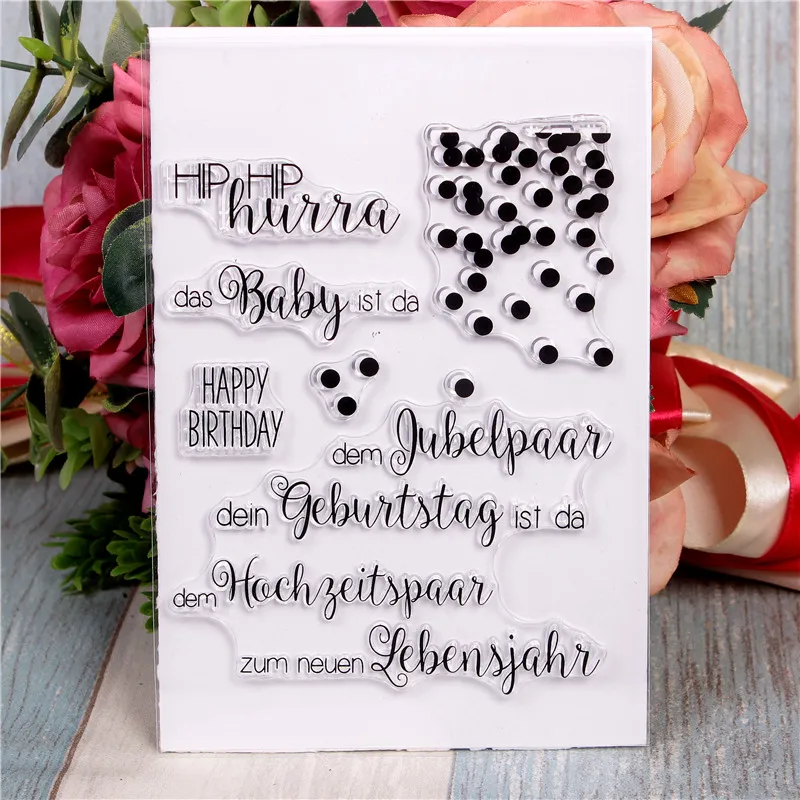 HIP HIP
hurra
das Baby ist da
HAPPY
BIRTHDAY
dem Jubelpaar
dein Geburtstag ist da
dem Hochzeitspaar
zum neuen Lebensjahr